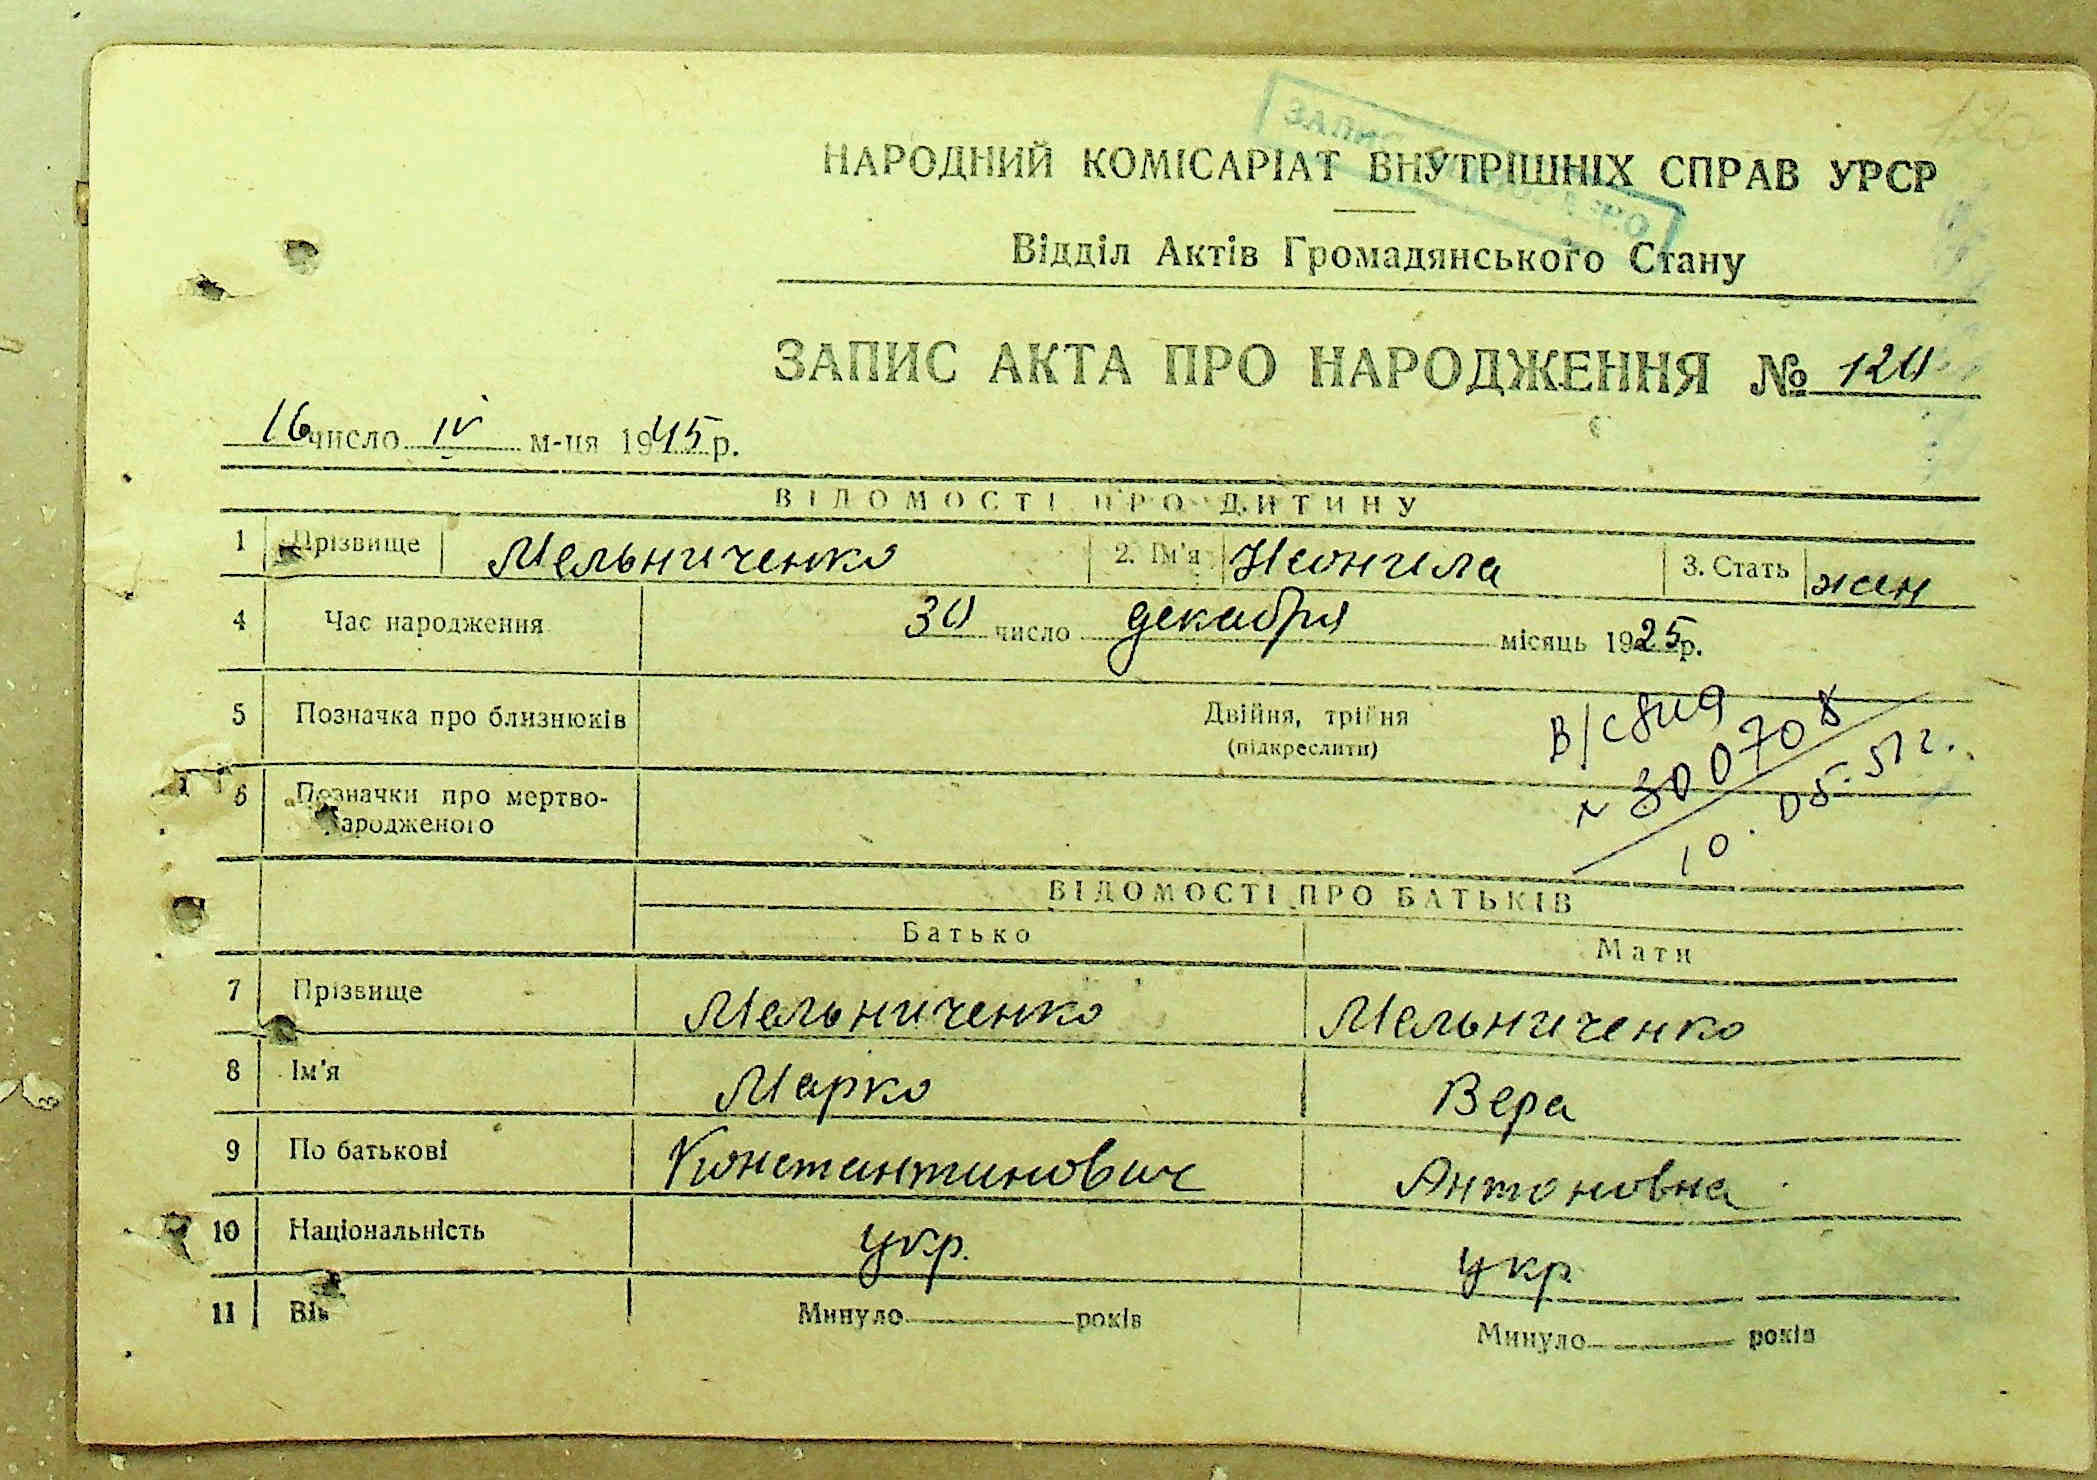 НАРОДНИЙ КОМІСАРІАТ ВНУТРІШНІХ СПРАВ УРСР
Відділ Актів Громадянського Стану
ЗАПИС АКТА ПРО НАРОДЖЕННЯ № 120
16 число IV м-ця 1945 р.
ВІДОМОСТІ ПРО ДИТИНУ
1 Прізвище Мельниченко 2. Ім'я Неонила 3. Стать жен
4 Час народження 30 число декабря місяць 1925 р.
5 Позначка про близнюків Двійня, трійня
(підкреслити)
6 Позначки про мертво-
народженого
300708
10.05.51 г.
ВІДОМОСТІ ПРО БАТЬКІВ
Батько Мати
7 Прізвище Мельниченко Мельниченко
8 Ім'я Марко Вера
9 По батькові Константинович Антоновна
10 Національність укр. укр
11 Вік Минуло років Минуло років